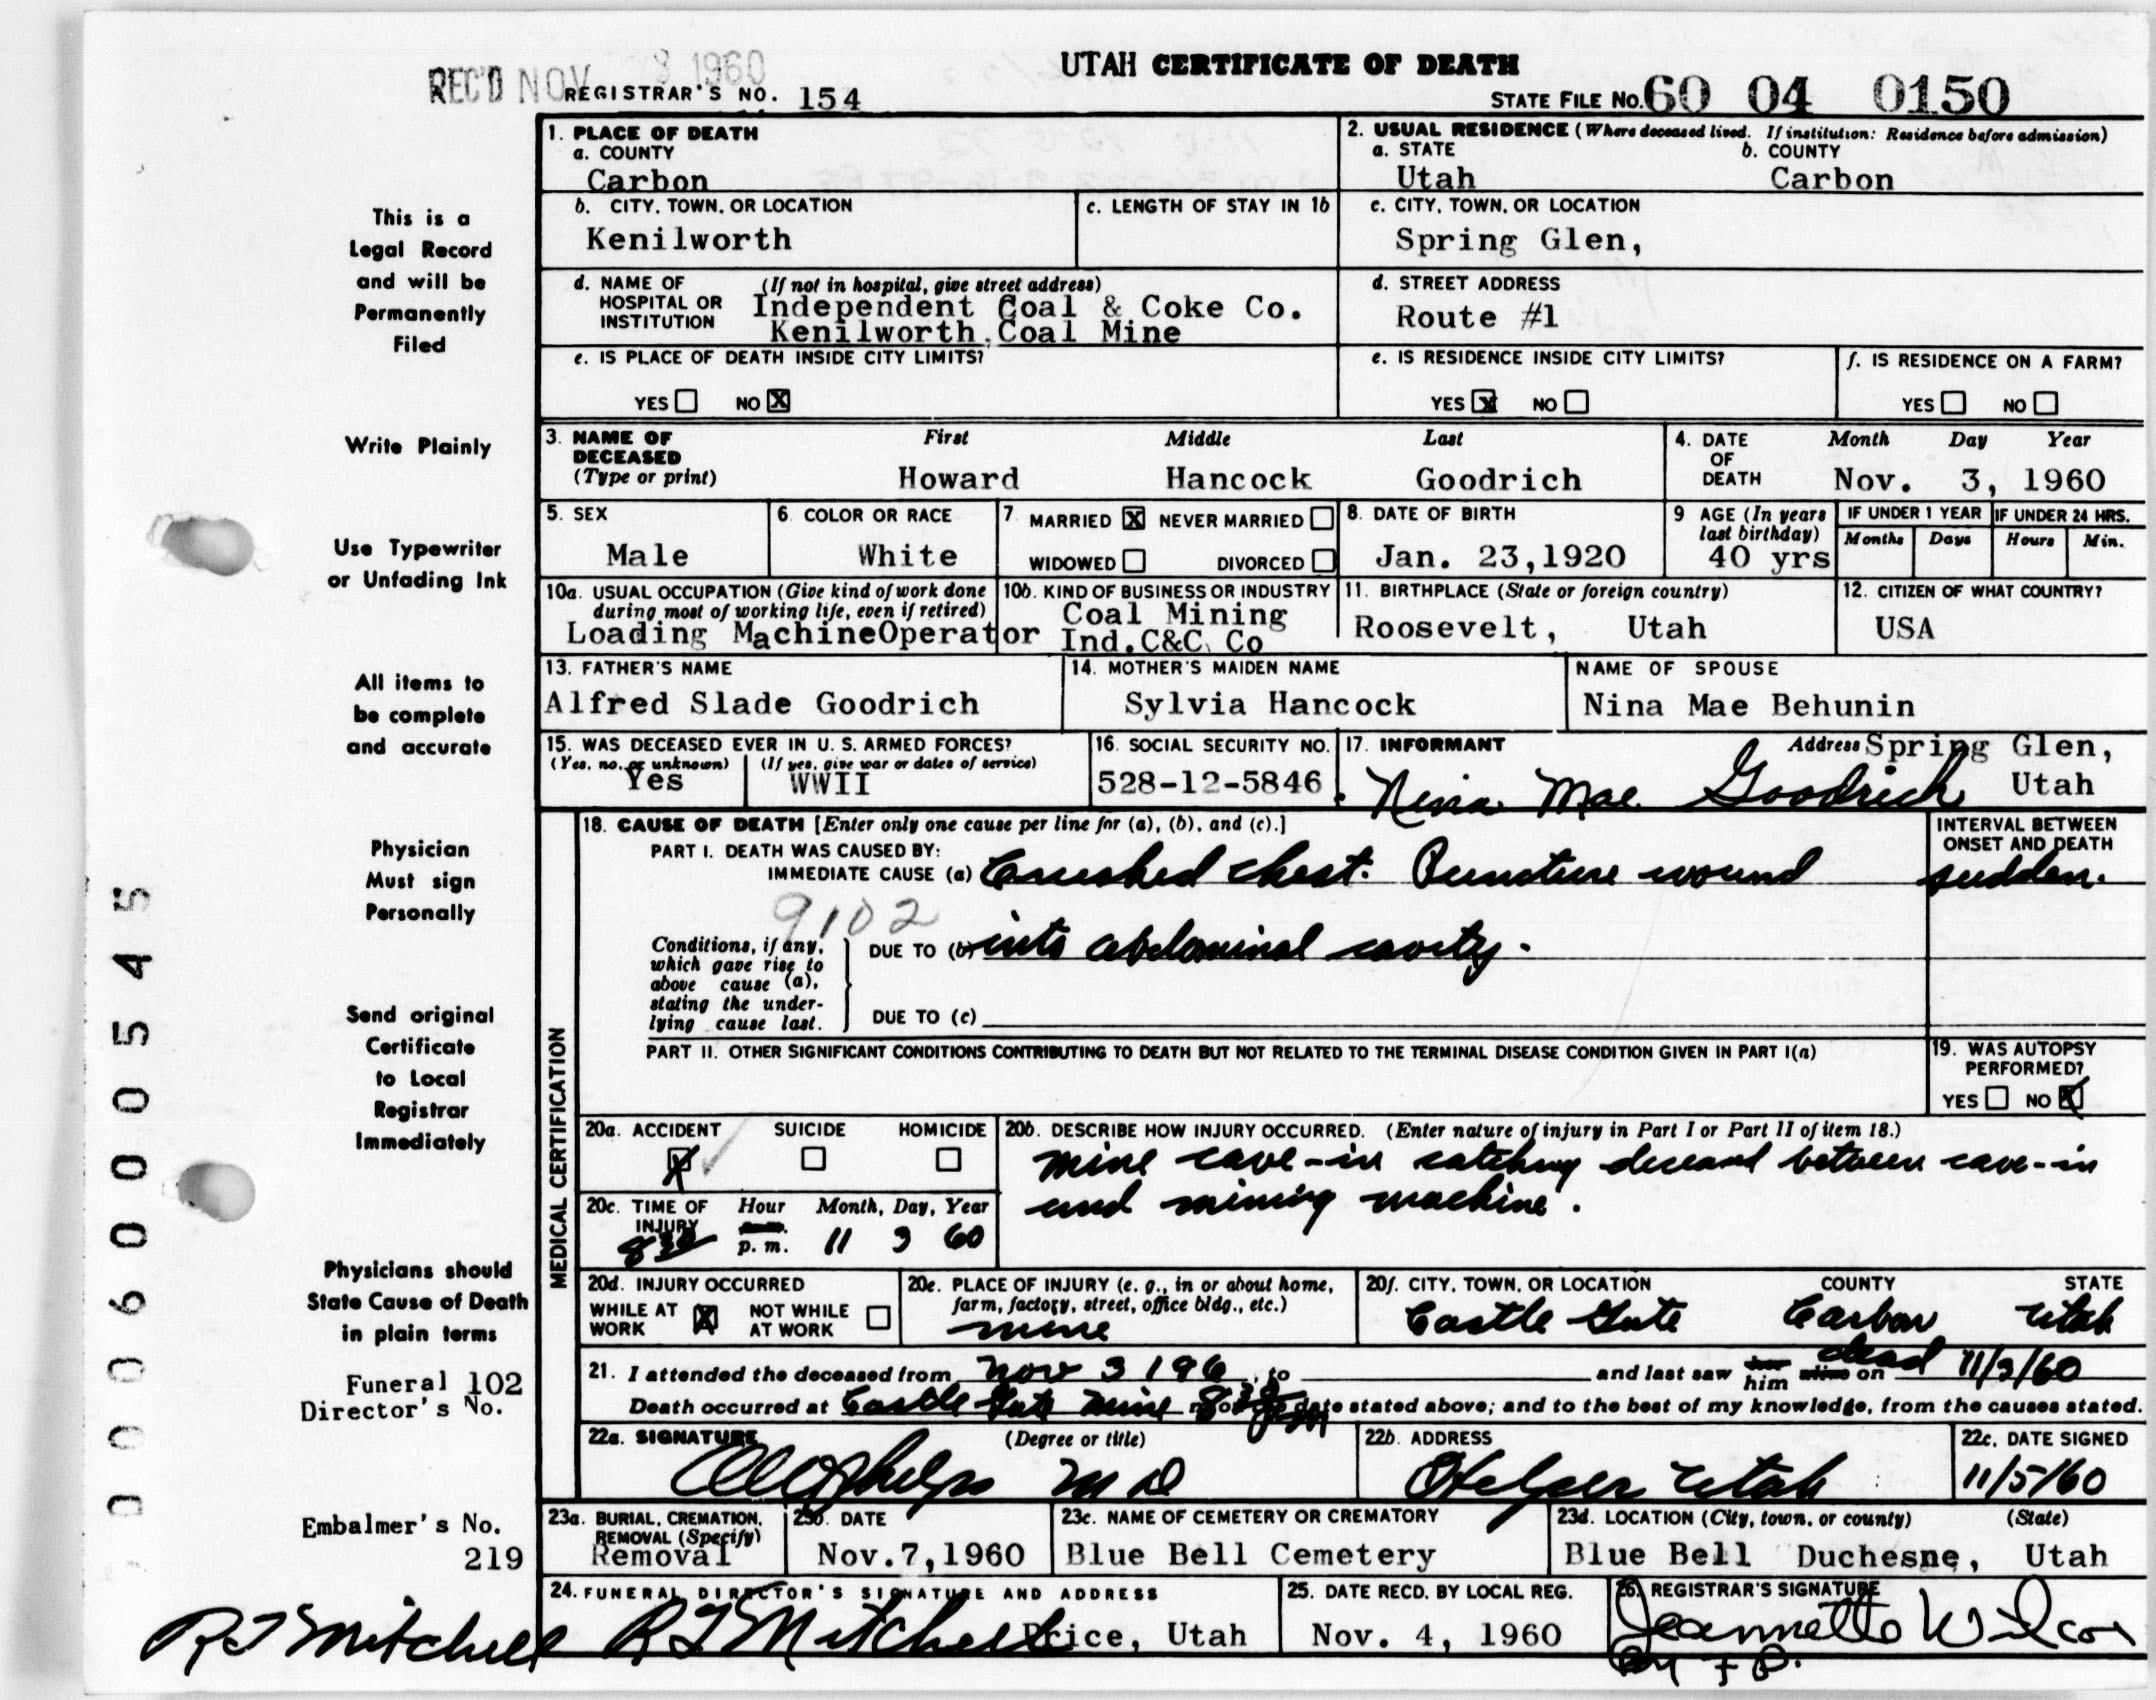 UTAH CERTIFICATE OF DEATH
REC'D NOV 8 1960
REGISTRAR'S NO. 154
STATE FILE NO. 60 04 0150
This is a
Legal Record
and will be
Permanently
Filed
Write Plainly
Use Typewriter
or Unfading Ink
All items to
be complete
and accurate
Physician
Must sign
Personally
Send original
Certificate
to Local
Registrar
Immediately
Physicians should
State Cause of Death
in plain terms
Funeral 102
Director's No.
Embalmer's No.
219
RJ Mitchell
1. PLACE OF DEATH
a. COUNTY
Carbon
2. USUAL RESIDENCE (Where deceased lived. If institution: Residence before admission)
a. STATE b. COUNTY
Utah Carbon
b. CITY, TOWN, OR LOCATION
Kenilworth
c. LENGTH OF STAY IN 1b
c. CITY, TOWN, OR LOCATION
Spring Glen,
d. NAME OF HOSPITAL OR INSTITUTION (If not in hospital, give street address)
Independent Coal & Coke Co.
Kenilworth, Coal Mine
d. STREET ADDRESS
Route #1
e. IS PLACE OF DEATH INSIDE CITY LIMITS?
YES NO X
e. IS RESIDENCE INSIDE CITY LIMITS?
YES X NO
f. IS RESIDENCE ON A FARM?
YES NO
3. NAME OF DECEASED (Type or print)
First Middle Last
Howard Hancock Goodrich
4. DATE OF DEATH Month Day Year
Nov. 3, 1960
5. SEX
Male
6. COLOR OR RACE
White
7. MARRIED X NEVER MARRIED
WIDOWED DIVORCED
8. DATE OF BIRTH
Jan. 23,1920
9 AGE (In years last birthday)
40 yrs
IF UNDER 1 YEAR
Months Days
IF UNDER 24 HRS.
Hours Min.
10a. USUAL OCCUPATION (Give kind of work done during most of working life, even if retired)
Loading MachineOperator
10b. KIND OF BUSINESS OR INDUSTRY
Coal Mining
Ind.C&C. Co
11. BIRTHPLACE (State or foreign country)
Roosevelt, Utah
12. CITIZEN OF WHAT COUNTRY?
USA
13. FATHER'S NAME
Alfred Slade Goodrich
14. MOTHER'S MAIDEN NAME
Sylvia Hancock
NAME OF SPOUSE
Nina Mae Behunin
15. WAS DECEASED EVER IN U. S. ARMED FORCES?
(Yes, no, or unknown) (If yes, give war or dates of service)
Yes WWII
16. SOCIAL SECURITY NO.
528-12-5846
17. INFORMANT Address Spring Glen,
Nina Mae Goodrich Utah
MEDICAL CERTIFICATION
18. CAUSE OF DEATH [Enter only one cause per line for (a), (b), and (c).]
PART I. DEATH WAS CAUSED BY:
IMMEDIATE CAUSE (a) Crushed chest. Puncture wound
INTERVAL BETWEEN ONSET AND DEATH
sudden.
9102
Conditions, if any, which gave rise to above cause (a), stating the underlying cause last.
DUE TO (b) into abdominal cavity.
DUE TO (c)
PART II. OTHER SIGNIFICANT CONDITIONS CONTRIBUTING TO DEATH BUT NOT RELATED TO THE TERMINAL DISEASE CONDITION GIVEN IN PART I(a)
19. WAS AUTOPSY PERFORMED?
YES NO X
20a. ACCIDENT SUICIDE HOMICIDE
X
20b. DESCRIBE HOW INJURY OCCURRED. (Enter nature of injury in Part I or Part II of item 18.)
mine cave-in catching deceased between cave-in
and mining machine.
20c. TIME OF INJURY Hour Month, Day, Year
8 30 p. m. 11 3 60
20d. INJURY OCCURRED
WHILE AT WORK X NOT WHILE AT WORK
20e. PLACE OF INJURY (e. g., in or about home, farm, factory, street, office bldg., etc.)
mine
20f. CITY, TOWN, OR LOCATION COUNTY STATE
Castle Gate Carbon Utah
21. I attended the deceased from Nov 3 196 , to and last saw him dead on 11/3/60
Death occurred at Castle Gate Mine 8 30 pm date stated above; and to the best of my knowledge, from the causes stated.
22a. SIGNATURE (Degree or title)
M D
22b. ADDRESS
Helper Utah
22c. DATE SIGNED
11/5/60
23a. BURIAL, CREMATION, REMOVAL (Specify)
Removal
23b. DATE
Nov.7,1960
23c. NAME OF CEMETERY OR CREMATORY
Blue Bell Cemetery
23d. LOCATION (City, town, or county) (State)
Blue Bell Duchesne, Utah
24. FUNERAL DIRECTOR'S SIGNATURE AND ADDRESS
RJ Mitchell Price, Utah
25. DATE RECD. BY LOCAL REG.
Nov. 4, 1960
26. REGISTRAR'S SIGNATURE
Jeannette Wilcox
000600545